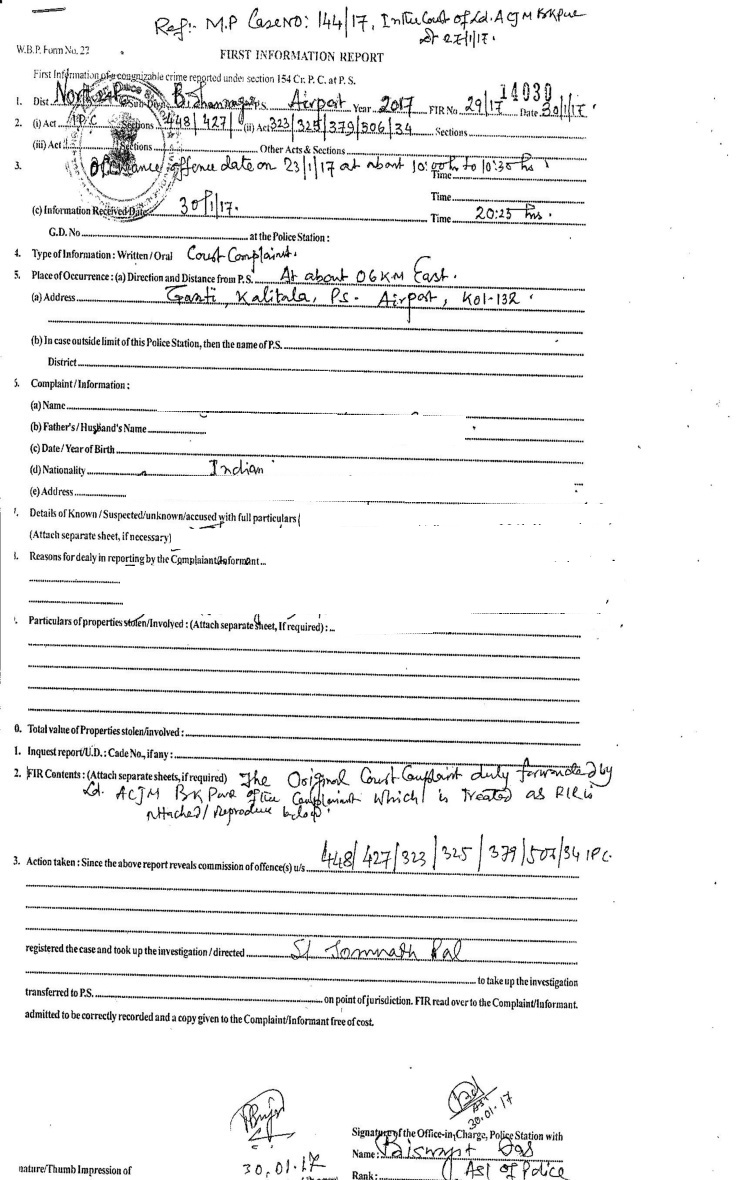 Ref:- M.P Case NO: 144/17, In the Court of Ld. ACJM BKpur
Dt 27/1/17.
W.B.P. Form No. 27
FIRST INFORMATION REPORT
First Information of a congnizable crime reported under section 154 Cr. P. C. at P. S.
14030
1. Dist. North Sub-Divn. Bidhannagar P.S. Airport Year 2017 FIR No 29/17 Date 30/1/17
2. (i) Act IPC Sections 448/427/ (ii) Act 323/325/379/506/34 Sections
(iii) Act Sections Other Acts & Sections
3. offence date on 23/1/17 at about 10:00 hr to 10:30 hrs
Time
Time
(c) Information Received Date 30/1/17. Time 20:25 hrs.
G.D. No at the Police Station :
4. Type of Information : Written / Oral Court Complaint.
5. Place of Occurrence : (a) Direction and Distance from P.S. At about 06 KM East.
(a) Address Ganti, Kalitala, P.S- Airport, Kol-132
(b) In case outside limit of this Police Station, then the name of P.S.
District
5. Complaint / Information :
(a) Name
(b) Father's / Husband's Name
(c) Date / Year of Birth
(d) Nationality Indian
(e) Address
Details of Known / Suspected/unknown/accused with full particulars (
(Attach separate sheet, if necessary)
Reasons for dealy in reporting by the Complaiant/Informant
Particulars of properties stolen/Involved : (Attach separate sheet, If required) :
0. Total value of Properties stolen/involved :
1. Inquest report/U.D. : Cade No., if any :
2. FIR Contents : (Attach separate sheets, if required) The Original Court Complaint duly forwarded by
Ld. ACJM BKPur of the Complainant which is treated as FIR is
attached/ Reproduce below.
3. Action taken : Since the above report reveals commission of offence(s) u/s 448/427/323/325/379/506/34 IPC.
registered the case and took up the investigation / directed SI Somnath Pal
to take up the investigation
transferred to P.S. on point of jurisdiction. FIR read over to the Complaint/Informant.
admitted to be correctly recorded and a copy given to the Complaint/Informant free of cost.
ASI
30.01.17
Signature of the Office-in-Charge, Police Station with
30.01.17
Name : Das
nature/Thumb Impression of
Rank: ASI of Police